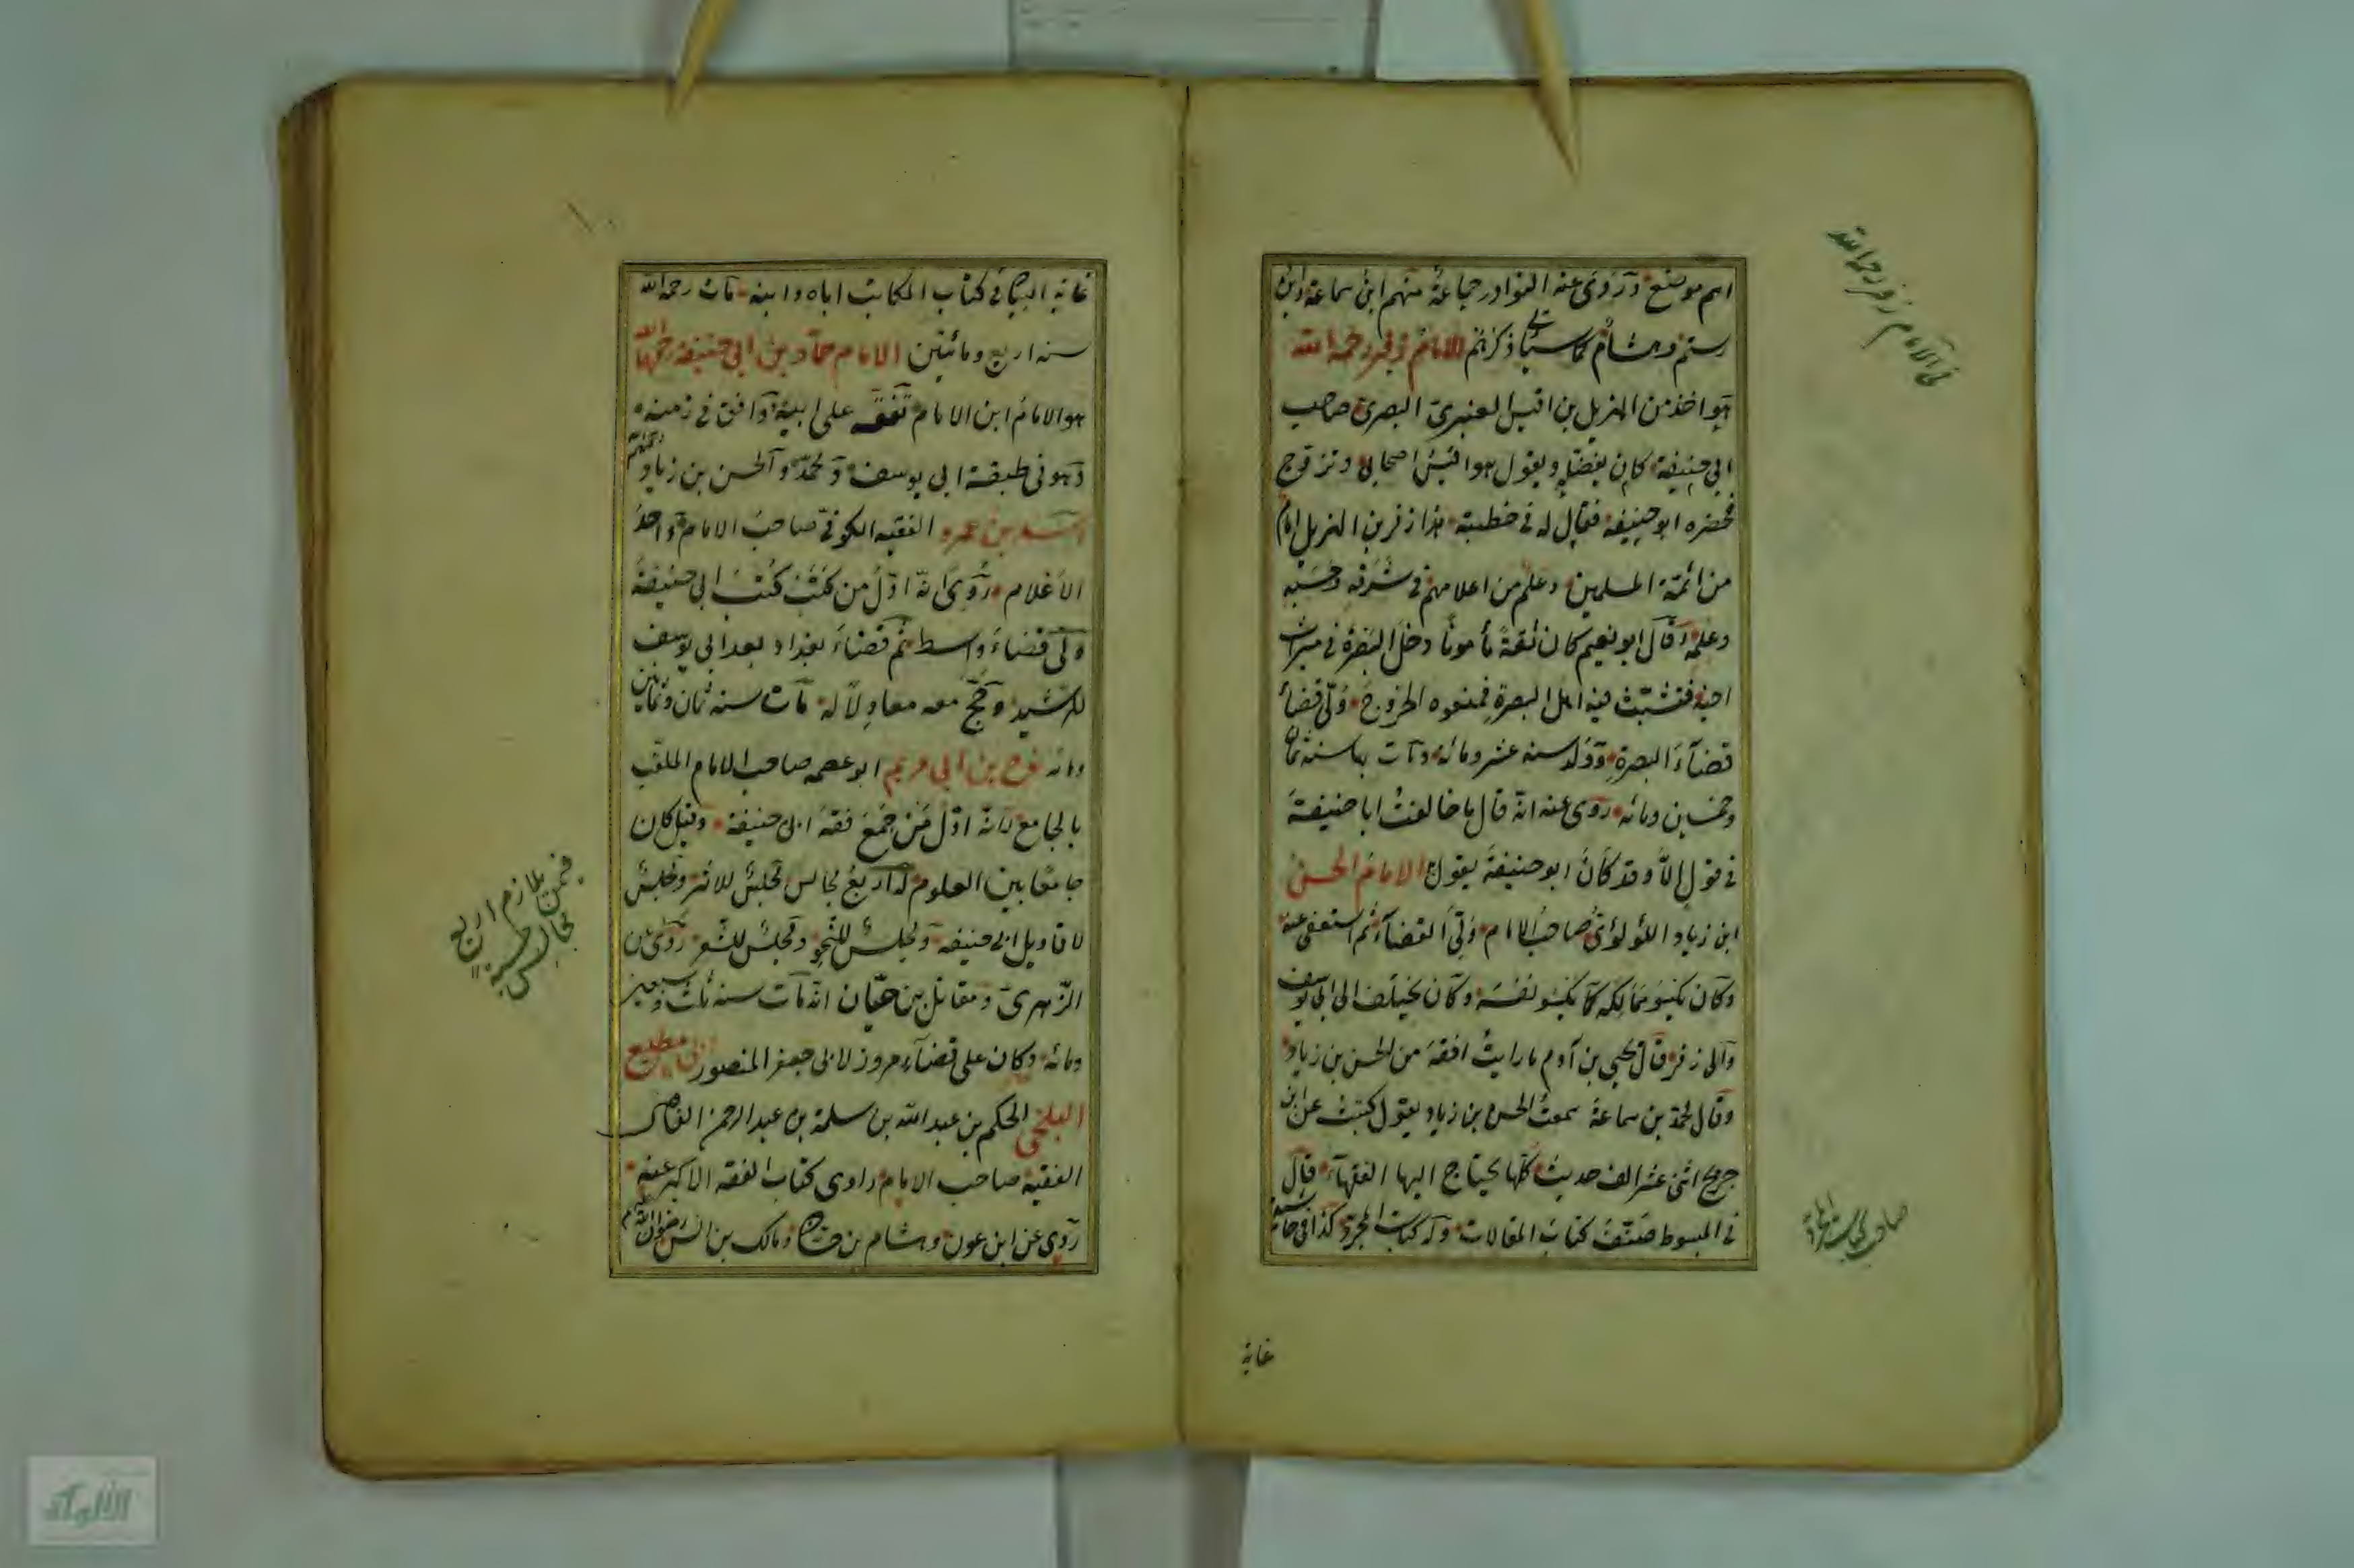 اسم موضع وروى عنه النوادر جماعة منهم ابن سماعة وابن
رستم وهشام كما سيأتي ذكرهم الامام زفر رحمه الله
هو احد من الهذيل بن قيس العنبري البصري صاحب
ابي حنيفة كان يفضله ويقول هو اقيس اصحابي وتزوج
فحضره ابو حنيفة فقال له في خطبته هذا زفر بن الهذيل امام
من ائمة المسلمين وعلم من اعلامهم في شرفه وحسبه
وعلمه وقال ابو نعيم كان ثقة مأمونا دخل البصرة في ميراث
اخيه فتشبث فيه اهل البصرة فمنعوه الخروج ولى قضا
قضاء البصرة وولد سنة عشر ومائة ومات بها سنة ثمان
وخمسين ومائة روى عنه انه قال ما خالفت ابا حنيفة
في قول الا وقد كان ابو حنيفة يقول الامام الحسن
ابن زياد اللؤلؤى صاحب الامام ولى القضاء ثم استعفى عنه
وكان يكسو مماليكه كما يكسو نفسه وكان يختلف الى ابي يوسف
والى زفر قال يحيى بن آدم ما رايت افقه من الحسن بن زياد
وقال محمد بن سماعة سمعت الحسن بن زياد يقول كتبت عن ابن
جريج اثنى عشر الف حديث كلها يحتاج اليها الفقهاء قال
في المبسوط صنف كتاب المقالات وله كتاب المجرد كذا في
في الامام زفر رحمه الله
صاحب كتاب المجرد
غاية
١٠
غاية البيان في كتاب المكاتب اباه وابنه مات رحمه الله
سنة اربع ومائتين الامام حماد بن ابي حنيفة رحمهما الله
هو الامام ابن الامام تفقه على ابيه وافتى في زمنه
وهو في طبقة ابي يوسف ومحمد والحسن بن زياد رحمهم الله
اسد بن عمرو الفقيه الكوفي صاحب الامام واحد
الاعلام روى انه اول من كتب كتب ابي حنيفة
ولى قضاء واسط ثم قضاء بغداد بعد ابي يوسف
للرشيد وحج معه معادلا له مات سنة ثمان وثمانين
ومائة نوح بن ابي مريم ابو عصمه صاحب الامام الملقب
بالجامع لانه اول من جمع فقه ابي حنيفة وقيل كان
جامعا بين العلوم له اربع مجالس مجلس للاثر ومجلس
لاقاويل ابي حنيفة ومجلس للنحو ومجلس للشعر روى عن
الزهرى ومقاتل بن حيان انه مات سنة ثلث وسبعين
ومائة وكان على قضاء مروز لابي جعفر المنصور ابي مطيع
البلخي الحكم بن عبد الله بن سلمة بن عبد الرحمن القاضي
الفقيه صاحب الامام راوى كتاب الفقه الاكبر عنه
روى عن ابن عون وهشام بن حسان ومالك بن انس رضوان الله عليهم
فمن يلازم اربع
مجالس
الألوكة